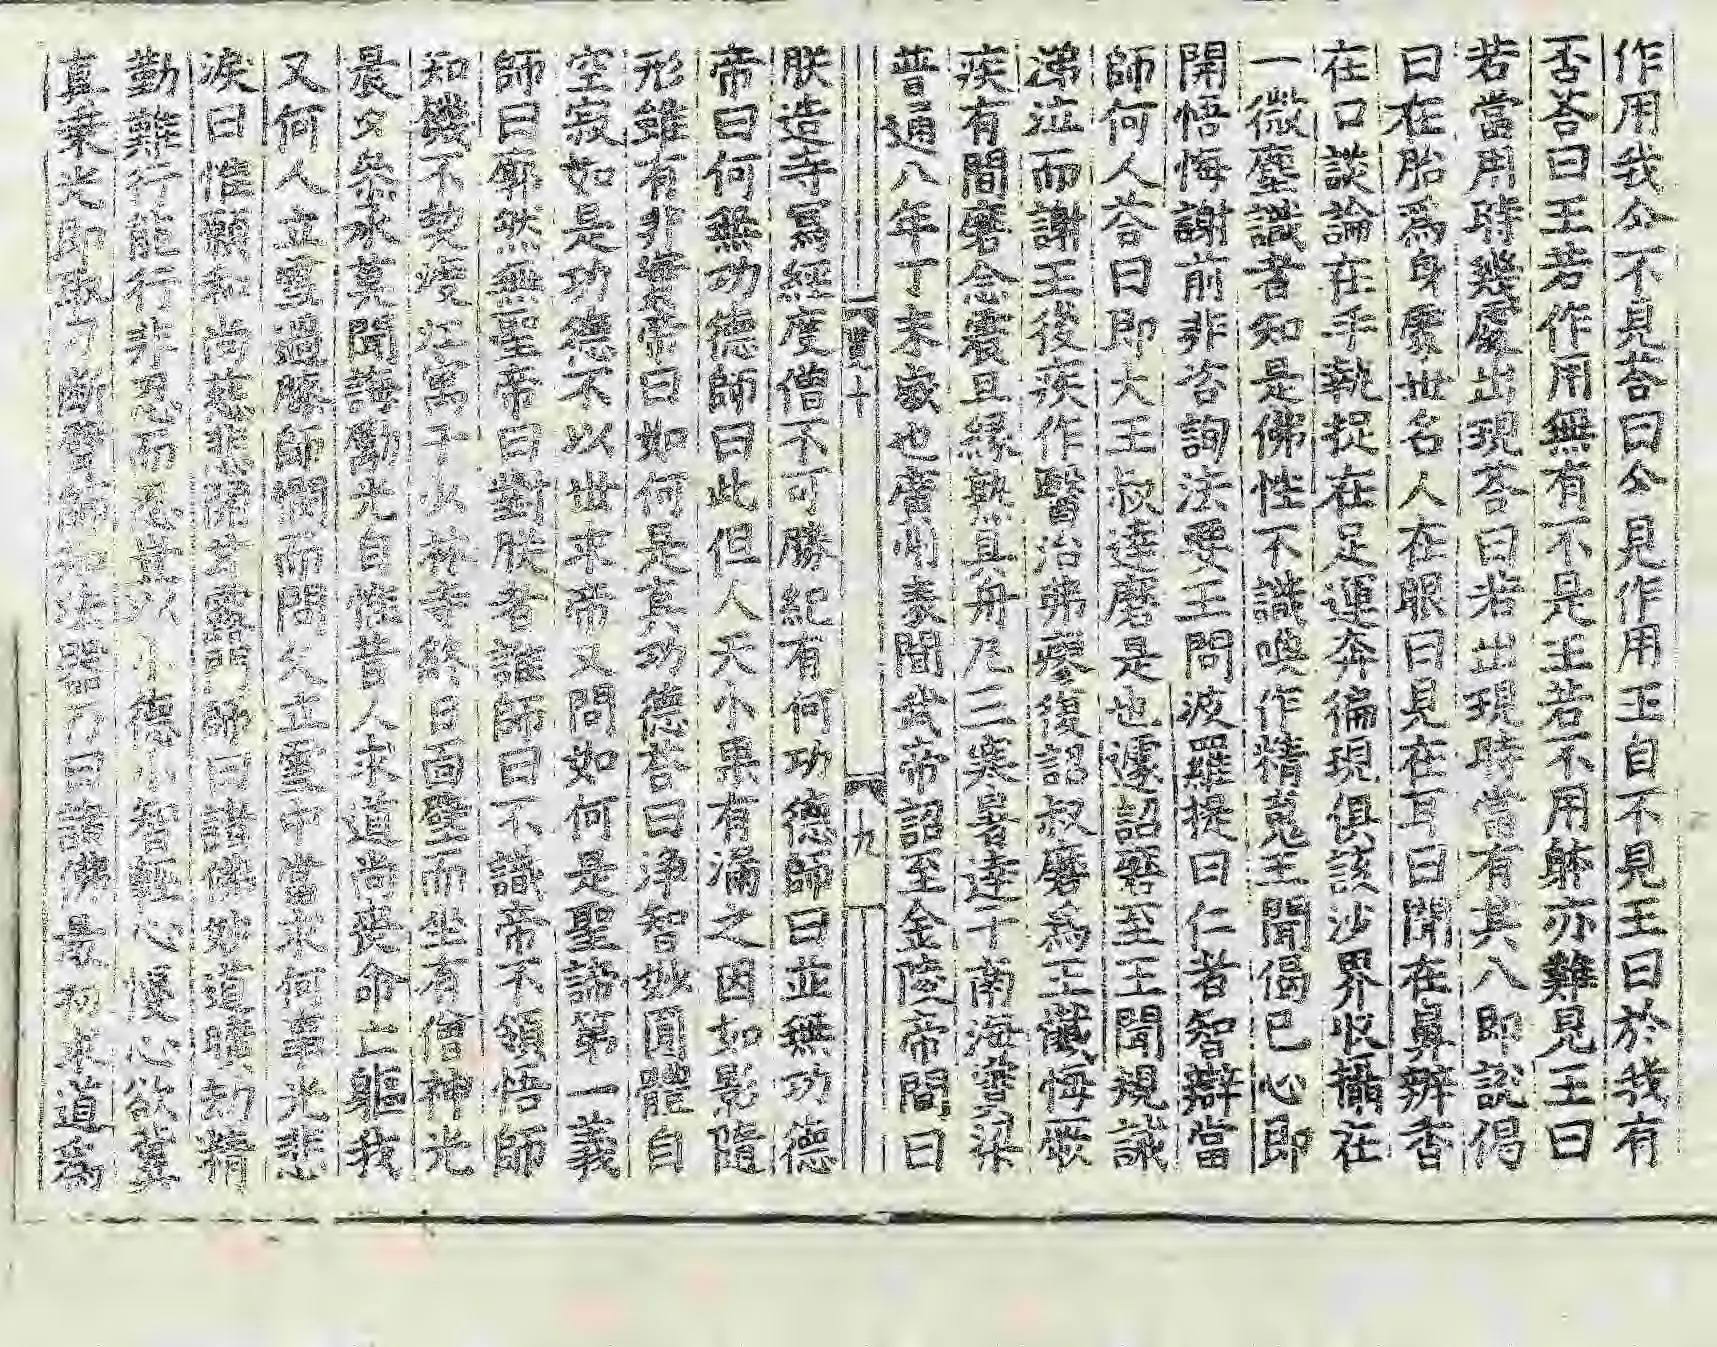 作用我今不見荅曰今見作用王自不見王曰於我有
否荅曰王若作用無有不是王若不用躰亦難見王曰
若當用時幾處出現荅曰若出現時當有其八即說偈
曰在胎爲身處世名人在眼曰見在耳曰聞在鼻辨香
在口談論在手執捉在足運奔徧現俱該沙界收攝在
一微塵識者知是佛性不識喚作精䰟王聞偈已心即
開悟悔謝前非咨詢法要王問波羅提曰仁者智辯當
師何人荅曰即大王叔達磨是也遽詔磨至王聞規誡
涕泣而謝王後疾作醫治弗瘳復詔叔磨爲王懺悔厥
疾有間磨念震旦緣熟具舟凡三寒暑達于南海當梁
普通八年丁未歲也廣州表聞武帝詔至金陵帝問曰
九
朕造寺寫經度僧不可勝紀有何功德師曰並無功德
帝曰何無功德師曰此但人天小果有漏之因如影隨
形雖有非實帝曰如何是真功德荅曰淨智妙圓體自
空寂如是功德不以世求帝又問如何是聖諦第一義
師曰廓然無聖帝曰對朕者誰師曰不識帝不領悟師
知機不契渡江寓于少林寺終日面壁而坐有僧神光
晨夕叅承莫聞誨勵光自惟昔人求道尚捨命亡軀我
又何人立雪過膝師憫而問久立雪中當求何事光悲
淚曰惟願和尚慈悲開甘露門師曰諸佛妙道曠劫精
勤難行能行非忍而忍豈以小德小智輕心慢心欲冀
真乗光即取刀斷臂師知法器乃曰諸佛最初求道爲